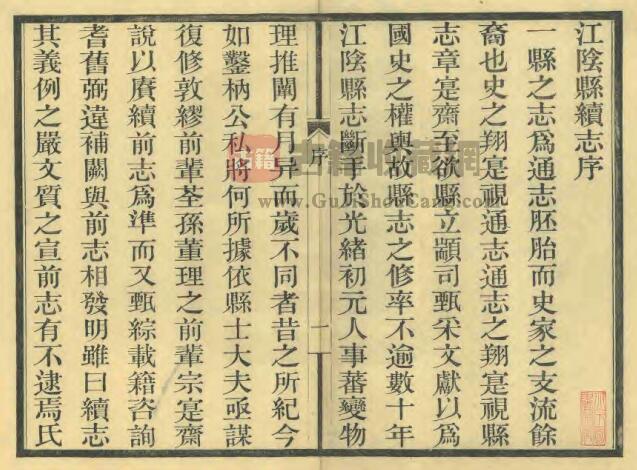 江陰縣續志序
一縣之志爲通志胚胎而史家之支流餘
裔也史之翔寔視通志通志之翔寔視縣
志章寔齋至欲縣立顓司甄采文獻以爲
國史之權輿故縣志之修率不逾數十年
江陰縣志斷手於光緒初元人事蕃變物
序
一
理推闡有月异而歲不同者昔之所紀今
如鑿枘公私將何所據依縣士大夫亟謀
復修敦繆前輩荃孫董理之前輩宗寔齋
說以賡續前志爲準而又甄綜載籍咨詢
耆舊弼違補闕與前志相發明雖曰續志
其義例之嚴文質之宣前志有不逮焉氏
古籍
古籍收藏网
www.GuJiShouCang.com